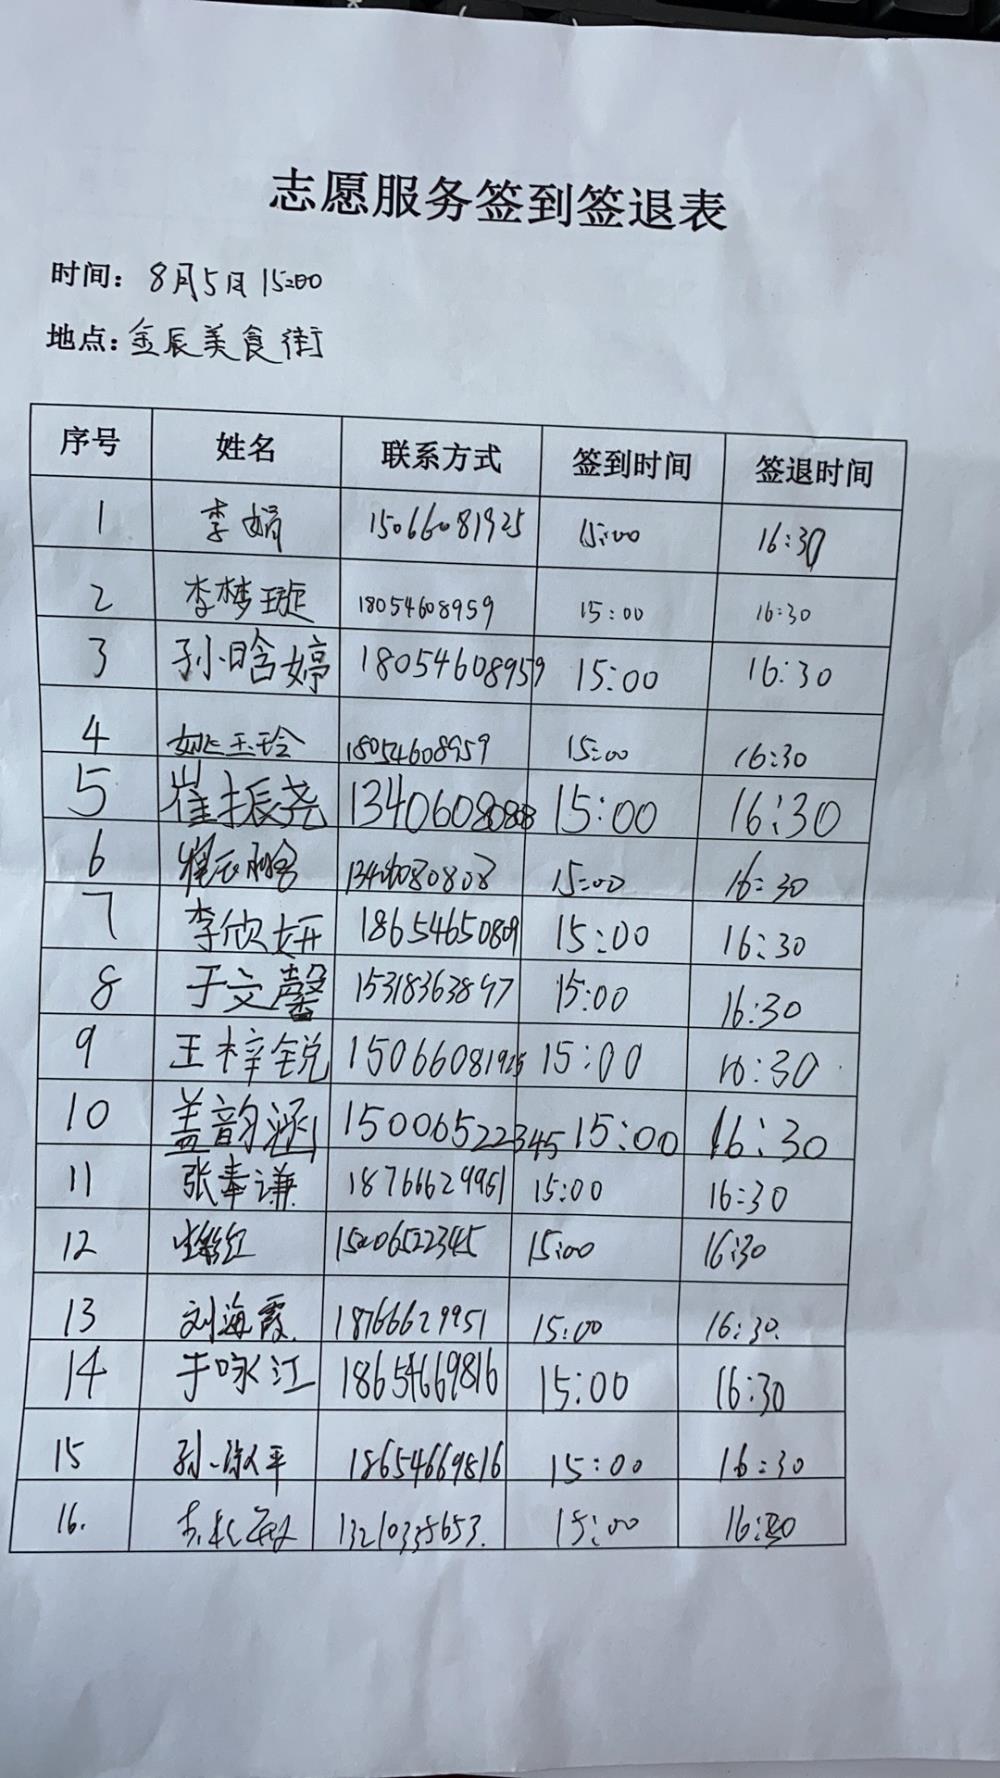 志愿服务签到签退表
时间：8月5日15:00
地点：金辰美食街
序号 姓名 联系方式 签到时间 签退时间
1 李娟 15066081925 15:00 16:30
2 李梦璇 18054608959 15:00 16:30
3 孙晗婷 18054608959 15:00 16:30
4 姚玉玲 18054608959 15:00 16:30
5 崔振尧 13406080808 15:00 16:30
6 13406080808 15:00 16:30
7 李欣妍 18654650809 15:00 16:30
8 于文馨 15318363897 15:00 16:30
9 王梓锐 15066081925 15:00 16:30
10 盖韵涵 15006522345 15:00 16:30
11 张奉谦 18766629951 15:00 16:30
12 15006522345 15:00 16:30
13 刘海霞 18766629951 15:00 16:30.
14 于咏江 18654669816 15:00 16:30
15 孙淑平 18654669816 15:00 16:30
16. 15:00 16:30